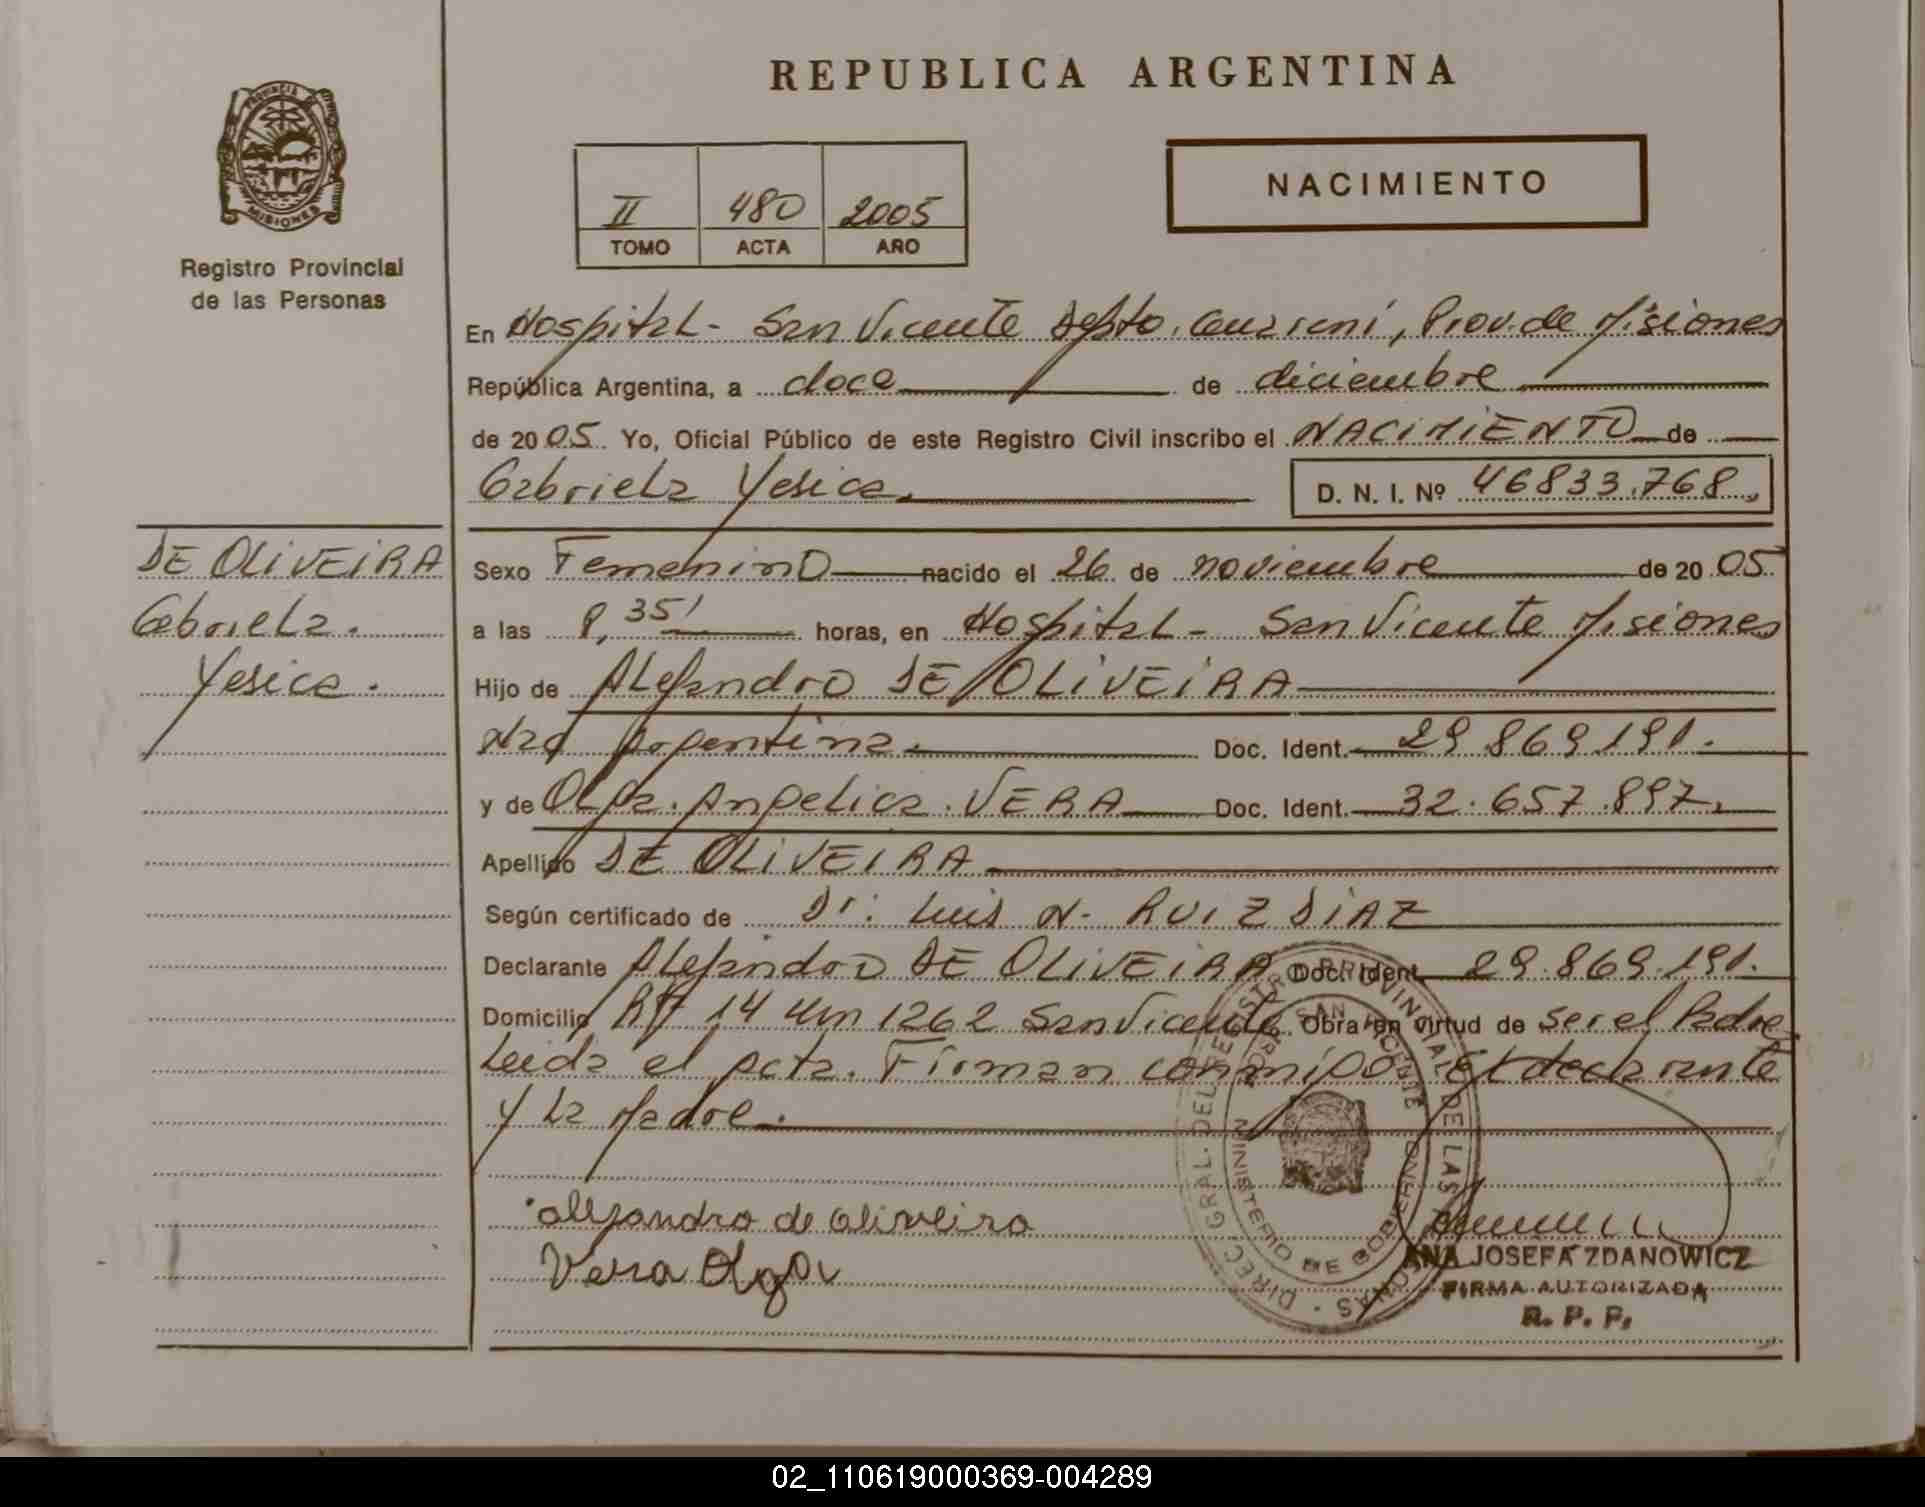 REPUBLICA ARGENTINA
PROVINCIA DE
MISIONES
Registro Provincial
de las Personas
II 480 2005
TOMO ACTA AÑO
NACIMIENTO
En Hospital - San Vicente Depto. Guaraní, Prov. de Misiones
República Argentina, a doce de diciembre
de 2005. Yo, Oficial Público de este Registro Civil inscribo el NACIMIENTO de
Gabriela Yesica. D. N. I. Nº 46833.768.
DE OLIVEIRA
Gabriela.
Yesica.
Sexo Femenino nacido el 26 de noviembre de 2005
a las 8,35' horas, en Hospital - San Vicente Misiones
Hijo de Alejandro DE OLIVEIRA
Nac Argentina. Doc. Ident. 29 869 191.
y de Olga. Angelica. VERA Doc. Ident. 32.657.897.
Apellido DE OLIVEIRA
Según certificado de Dr: Luis N. RUIZ DIAZ
Declarante Alejandro DE OLIVEIRA Doc. Ident. 29.869.191.
Domicilio 14 Km 1262 San Vicente Obra en virtud de ser el Padre
Leida el acta. Firman conmigo El declarante
y La Madre.
alejandro de oliveira
Vera Olga
DIREC. GRAL. DEL REGISTRO PROVINCIAL DE LAS PERSONAS
MINISTERIO DE GOBIERNO
SAN VICENTE
ANA JOSEFA ZDANOWICZ
FIRMA AUTORIZADA
R. P. P.
02_110619000369-004289